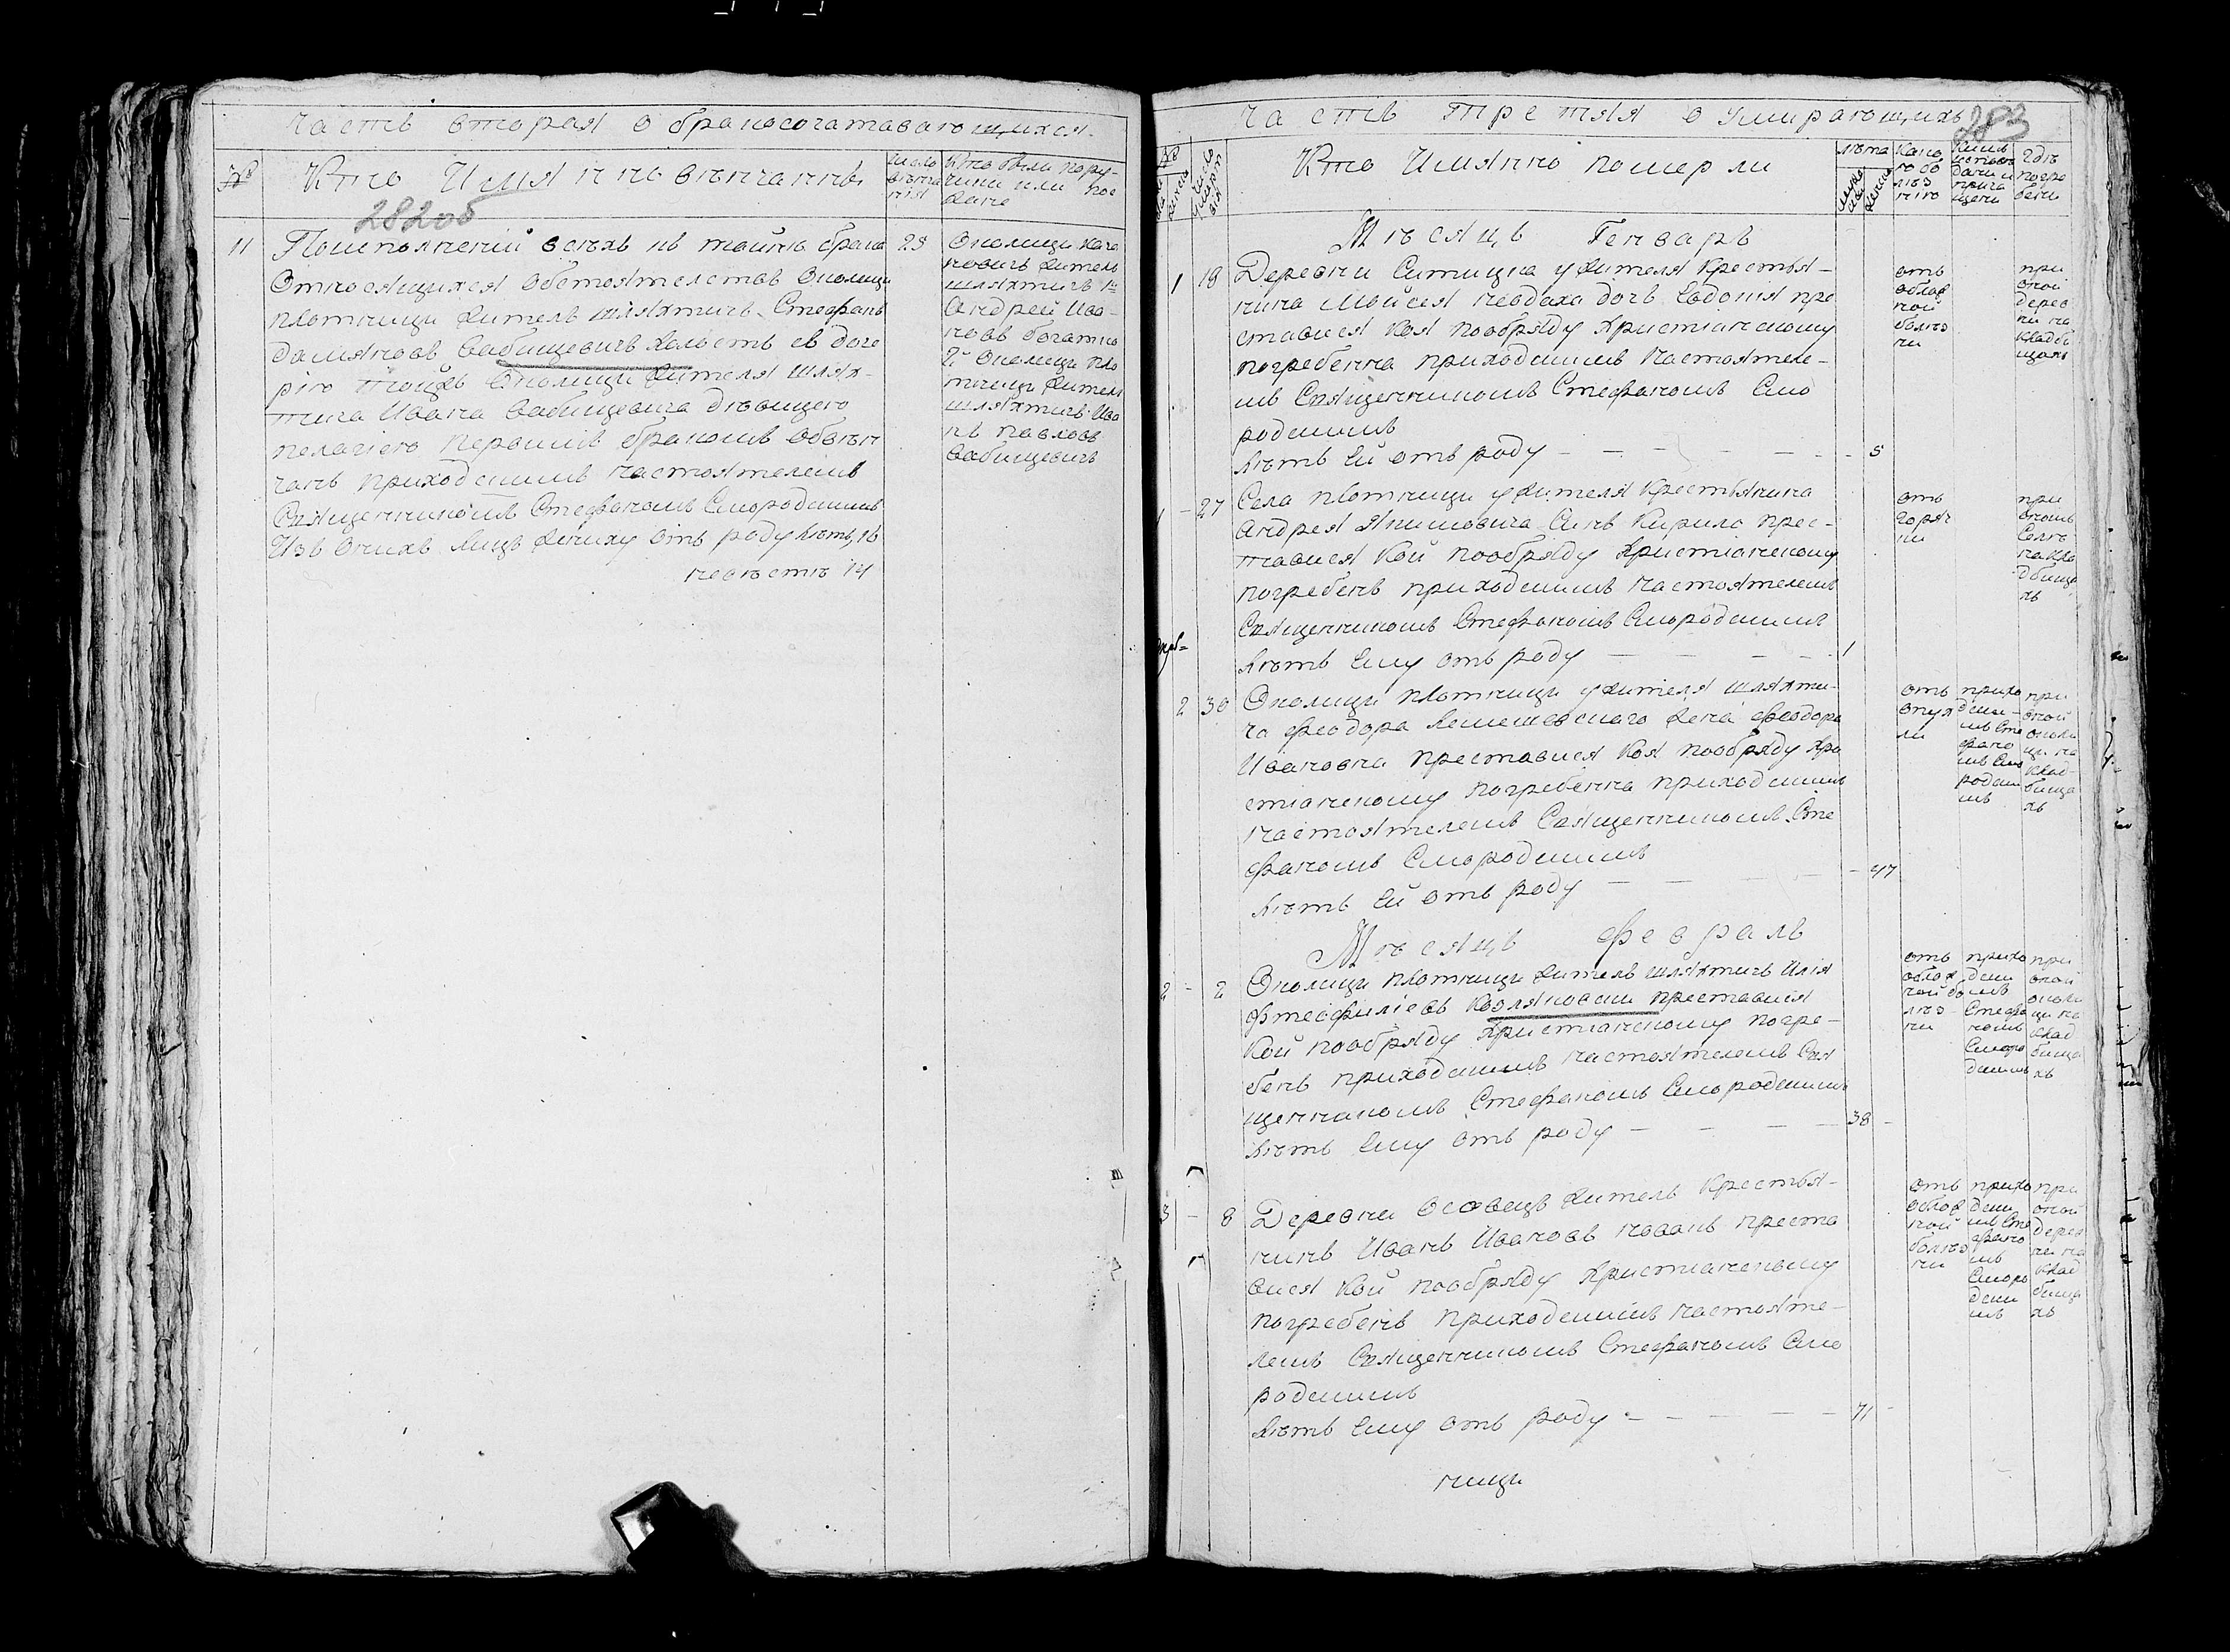 часть вторая о бракосочатавающихся.
№
Кто Имянно вѣнчанны
число вѣнчанія
Кто были поручики или поезжане
282об
11
По исполненій всѣхъ къ тайнѣ брака
Относящихся обстоятелствъ Околици
плотници житель шляхтичъ Стефанъ
Дамяновъ Бабицевичъ холостъ съ доче
рію тойже Околици жителя шлях-
тича Ивана Бабицевича дѣвицею
пелагіею первымъ бракомъ обвѣн
чанъ приходскимъ настоятелемъ
Священникомъ Стефаномъ Смородскимъ
Изъ Оныхъ лицъ жениху отъ роду лѣтъ, 16
невѣстѣ 14
25
Околици кача
новичъ житель
шляхтичъ 1й
Андрей Ива-
новъ богатко
2й Околици пло
тници житель
шляхтичъ Ива
нъ павловъ
Бабицевичъ
часть третяя о умирающихъ
283
Кто Имянно померли
лѣта
Какою болѣзнію
Кимъ исповѣданы и причащены
Гдѣ погребены
Мѣсяцъ Генварь
1
19
Деревни Ситицка у жителя Крестья-
нина Мойсея неодаха дочь Евдокія пре
ставися коя пообряду Христіанскому
погребенна приходскимъ настоятеле-
мъ Священникомъ Стефаномъ Смо
родскимъ
лѣтъ Ей отъ роду - - - - - 5
отъ
оспов
ной
болѣз
ни
при
оной
дерев
ни на
кладби
щахъ
1 - 27
Села плотници у жителя Крестьянина
Андрея Якимовича Сынъ Кирило прес-
тавися Кой пообряду Христіанскому
погребенъ приходскимъ настоятелемъ
Священникомъ Стефаномъ Смородскимъ
лѣтъ Ему отъ роду - - - - 1
отъ
горяч
ки
при
ономъ
Селѣ
на кла
дбища
хъ
2 30
Околици плотници у жителя шляхти-
ча Феодора Лемешевского жена Феодора
Ивановна преставися Коя пообряду Хри
стіанскому погребенна приходскимъ
настоятелемъ Священникомъ Сте
фаномъ Смородскимъ
лѣтъ Ей отъ роду - - - - - 47
отъ
опух
ли
прихо
дски-
мъ Сте
фано
мъ Смо
родски
мъ
при
оной
околи
ци на
клад-
бища
хъ
Мѣсяцъ Февраль
2 - 2
Околици плотници житель шляхтичъ Илія
Фтеофиліевъ Козляковскій преставися
Кой пообряду Христіанскому погре-
бенъ приходскимъ настоятелемъ Свя
щенникомъ Стефаномъ Смородскимъ
лѣтъ Ему отъ роду - - - - 38 -
прихо
дски
мъ
Стефа
номъ
Сморо
дскимъ
при
оной
околи
ци на
клад
бища
хъ
3 - 8
Деревни Осовецъ житель Крестья-
нинъ Иванъ Ивановъ новакъ преста
вися Кой пообряду Христіанскому
погребенъ приходскимъ настояте-
лемъ Священникомъ Стефаномъ Смо
родскимъ
лѣтъ Ему отъ роду - - - - - 71 -
прихо
дски
мъ Сте
фано
мъ
Сморо
дски
мъ
при
оной
дерев
ни на
клад
бища
хъ
ници